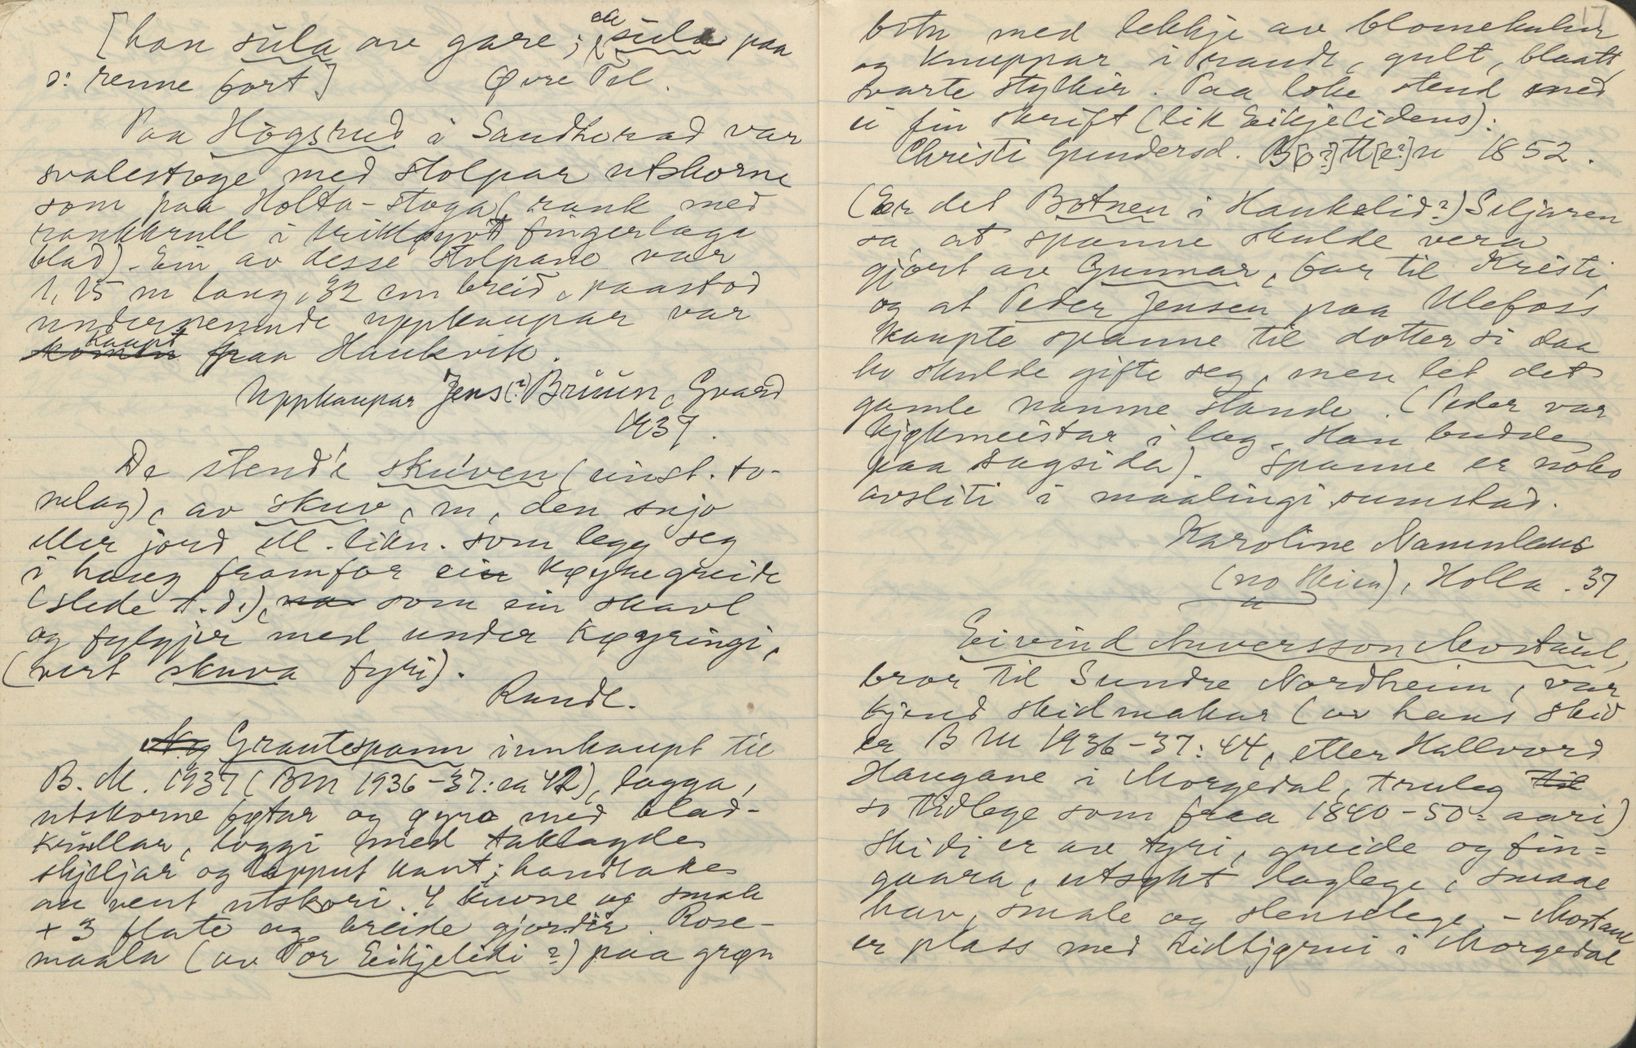 [han sula av gare; sula paa
ɔ: renne fort] Øvre Tel.
Paa Högsrud i Sandherad var
svalestoge med stolpar utskorne
som paa Holta-stoga (rank med
rankkrull i fingerlaga
blad). Ein av desse stolpane var
1,15 m lang, 32 cm breid, paastod
undervenande uppkaupar var
kaupt fraa Haukvik.
Uppkaupar Jens(?) Bruun, Gvarv
1937.
De stend'e skuven (einst. to-
nelag), av skuv, m, den snjo
eller jord ell. likn. som legg seg
i haug framfor ein køyregreide
(slede t.d.), som ein skavl
og fylgjer med under køyringi,
(vert skuva fyri).
Raudl.
Grautespann innkaupt til
B.M. 1937 (BM 1936-37: nr 42), lagga,
utskorne føtar og gyro med blad-
krullar, loggi med taklagde
skjeljar og upput kant; handtaket
au vent utskori. 4 kuvne og smale
+ 3 flate og breide gjorder. Rose-
maala (av Tor Eikjelidi?) paa grøn
17
botn med lekkje av blomekular
og knuppar i raudt, gult, blaatt
svarte stylkir. Paa loke stend med
ei fin skrift (lik Eikjelidens):
Christi Gundersd. B[o?]tt[e?]n 1852.
(Er det Botnen i Haukelid?) Seljaren
sa, at spanne skulde vera
gjort av Gunnar, far til Kristi,
og at Peder Jensen paa Ulefoss
kaupte spanne til dotter si daa
ho skulde gifte seg, men let det
gamle namne stande. (Peder var
hjelmeistar i lag. Han budde
paa Sagsida). Spanne er noko
avsliti i maalingi sumstad.
Karoline Namnlaus
(no Heien), Holla. 37
Eivind Auversson Mostaul,
bror til Sundre Nordheim, var
kjend skidmakar (av hans skid
er BM 1936-37: 44, etter Hallvord
Haugane i Morgedal, truleg
so tidlege som fraa 1840-50-aari)
Skidi er av tyri, greide og fin-
gaara, utsøkt laglege, smaae
hav, smale og slenselege. - Mostaul
er plass med Lidtjørni i Morgedal